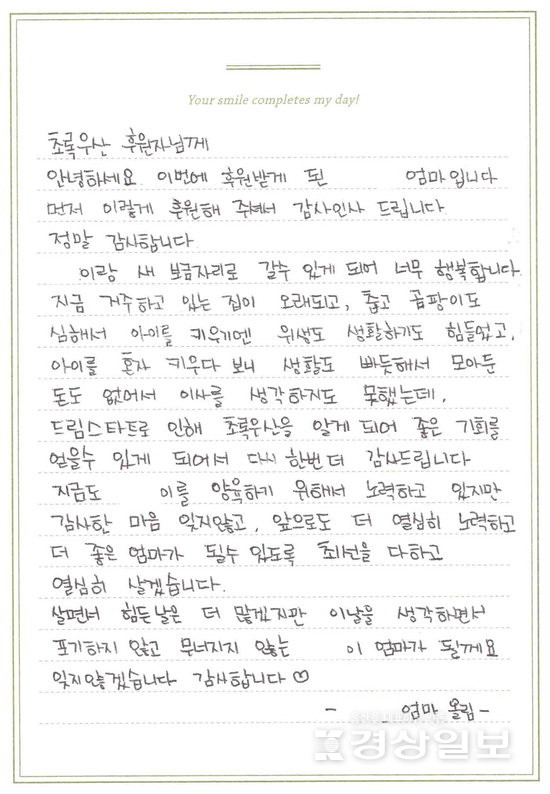 Your smile completes my day!
초록우산 후원자님께
안녕하세요. 이번에 후원받게 된 엄마입니다
먼저 이렇게 후원해 주셔서 감사인사 드립니다
정말 감사합니다
이랑 새 보금자리로 갈수 있게 되어 너무 행복합니다.
지금 거주하고 있는 집이 오래되고, 춥고 곰팡이도
심해서 아이를 키우기엔 위생도 생활하기도 힘들었고,
아이를 혼자 키우다 보니 생활도 빠듯해서 모아둔
돈도 없어서 이사를 생각하지도 못했는데,
드림스타트로 인해 초록우산을 알게 되어 좋은 기회를
얻을수 있게 되어서 다시 한번 더 감사드립니다
지금도 이를 양육하기 위해서 노력하고 있지만
감사한 마음 잊지않고, 앞으로도 더 열심히 노력하고
더 좋은 엄마가 될수 있도록 최선을 다하고
열심히 살겠습니다.
살면서 힘든날은 더 많겠지만 이날을 생각하면서
포기하지 않고 무너지지 않는 이 엄마가 될게요
잊지않겠습니다 감사합니다♡
- 엄마 올림 -
경상일보